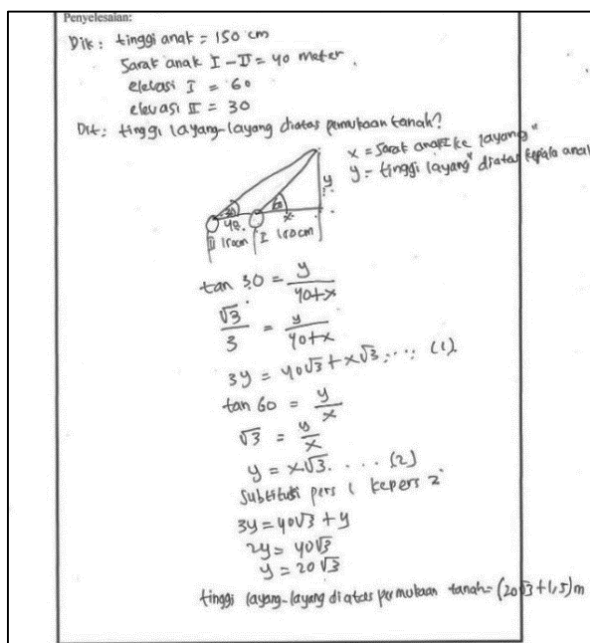 Penyelesaian:
Dik: tinggi anak = 150 cm
Jarak anak I - II = 40 meter.
elevasi I = 60
elevasi II = 30
Dit: tinggi layang-layang diatas permukaan tanah?
x = Jarak anak I ke layang"
y = tinggi layang" diatas kepala anak
30 60 y
40 x
II 150cm I 150cm
tan 30 = y/(40+x)
√3/3 = y/(40+x)
3y = 40√3 + x√3 .... (1)
tan 60 = y/x
√3 = y/x
y = x√3 . . . . (2)
Subtitusi pers 1 kepers 2
3y = 40√3 + y
2y = 40√3
y = 20√3
tinggi layang-layang diatas permukaan tanah = (20√3 + 1,5) m